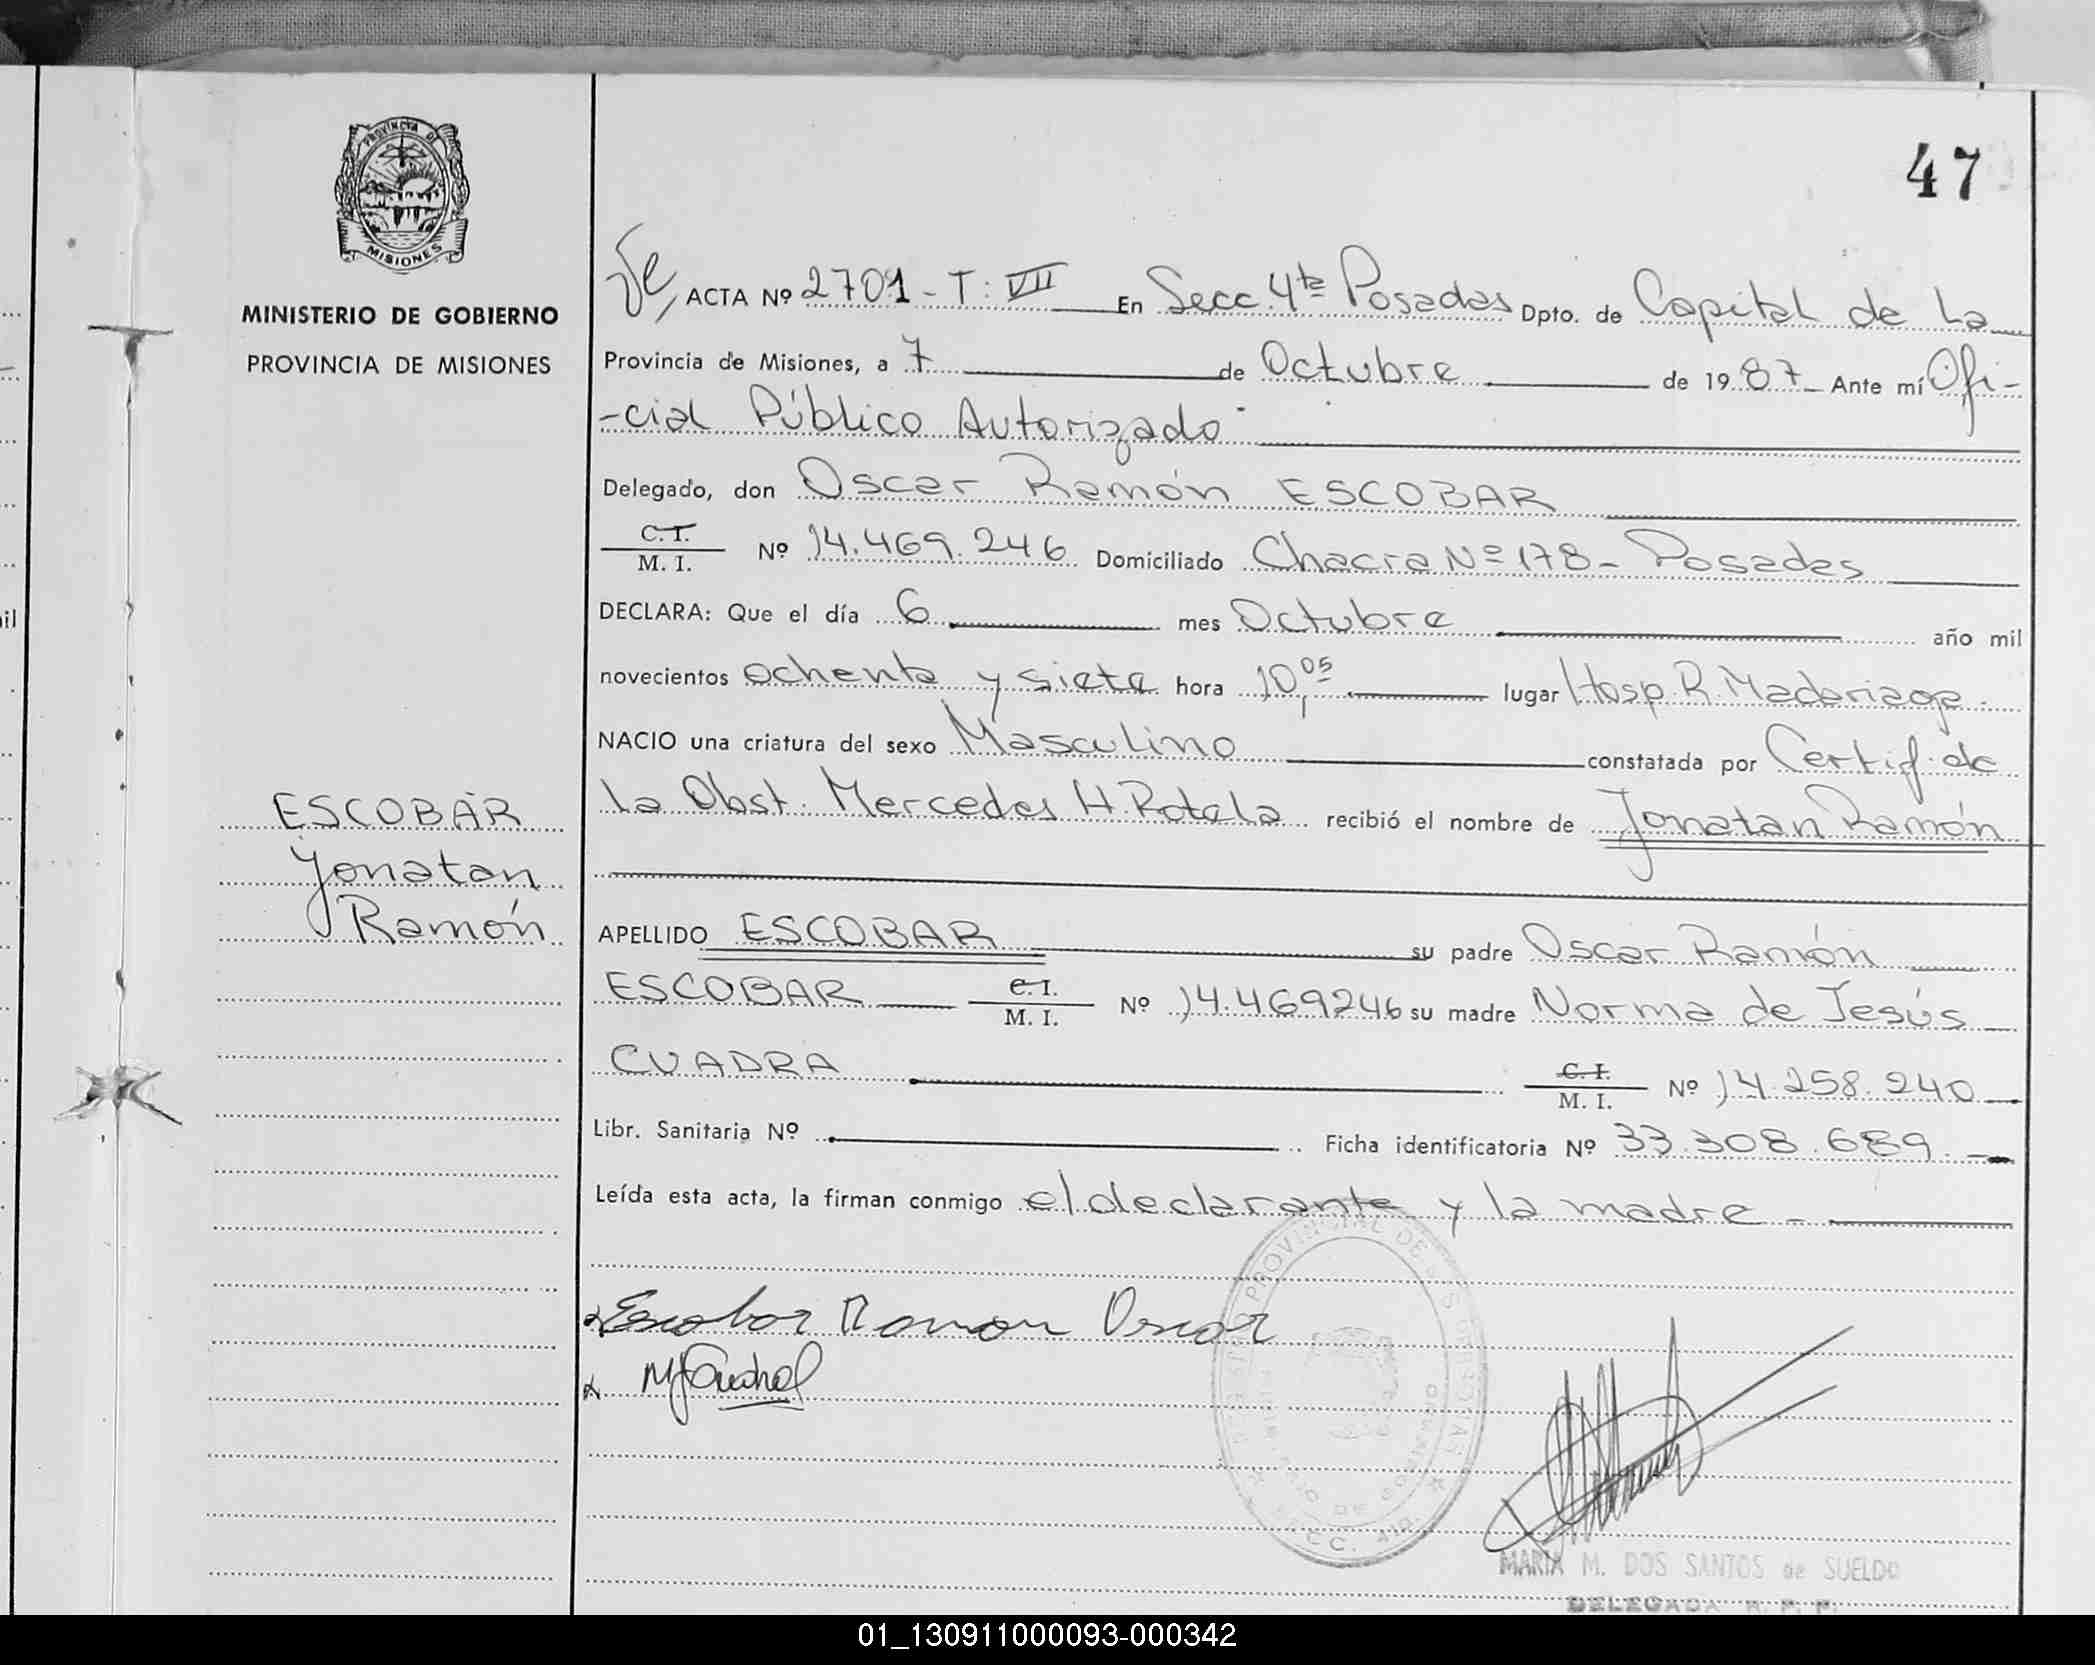 47
PROVINCIA DE
MISIONES
MINISTERIO DE GOBIERNO
PROVINCIA DE MISIONES
ACTA Nº 2701 - T: VII En Secc. 4ta Posadas Dpto. de Capital de la
Provincia de Misiones, a 7 de Octubre de 1987 - Ante mí Ofi-
-cial Público Autorizado
Delegado, don Oscar Ramón ESCOBAR
C. I.
M. I. Nº 14.469.246 Domiciliado Chacra Nº 178 - Posadas
DECLARA: Que el día 6 mes Octubre año mil
novecientos ochenta y siete hora 10,05 lugar Hosp. R. Madariaga -
NACIO una criatura del sexo Masculino constatada por Certif. de
la Obst. Mercedes H. Rotela recibió el nombre de Jonatan Ramón
ESCOBAR
Jonatan
Ramón
APELLIDO ESCOBAR su padre Oscar Ramón
ESCOBAR C. I. M. I. Nº 14.469246 su madre Norma de Jesús
CUADRA C. I. M. I. Nº 14.258.240
Libr. Sanitaria Nº Ficha identificatoria Nº 33.308.689. -
Leída esta acta, la firman conmigo el declarante y la madre -
Escobar Ramon Oscar
MARIA M. DOS SANTOS de SUELDO
DELEGADA R. P. P.
01_130911000093-000342